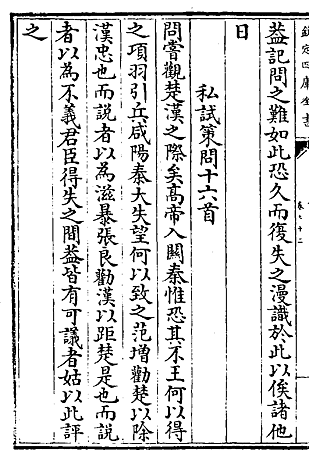 欽定四庫全書
卷七十二
葢記問之難如此恐久而復失之漫識於此以俟諸他
日
私試策問十六首
問嘗觀楚漢之際矣髙帝入關秦惟恐其不王何以得
之項羽引兵咸陽秦大失望何以致之范增勸楚以除
漢忠也而說者以為滋暴張良勸漢以距楚是也而說
者以為不義君臣得失之間葢皆有可議者姑以此評
之